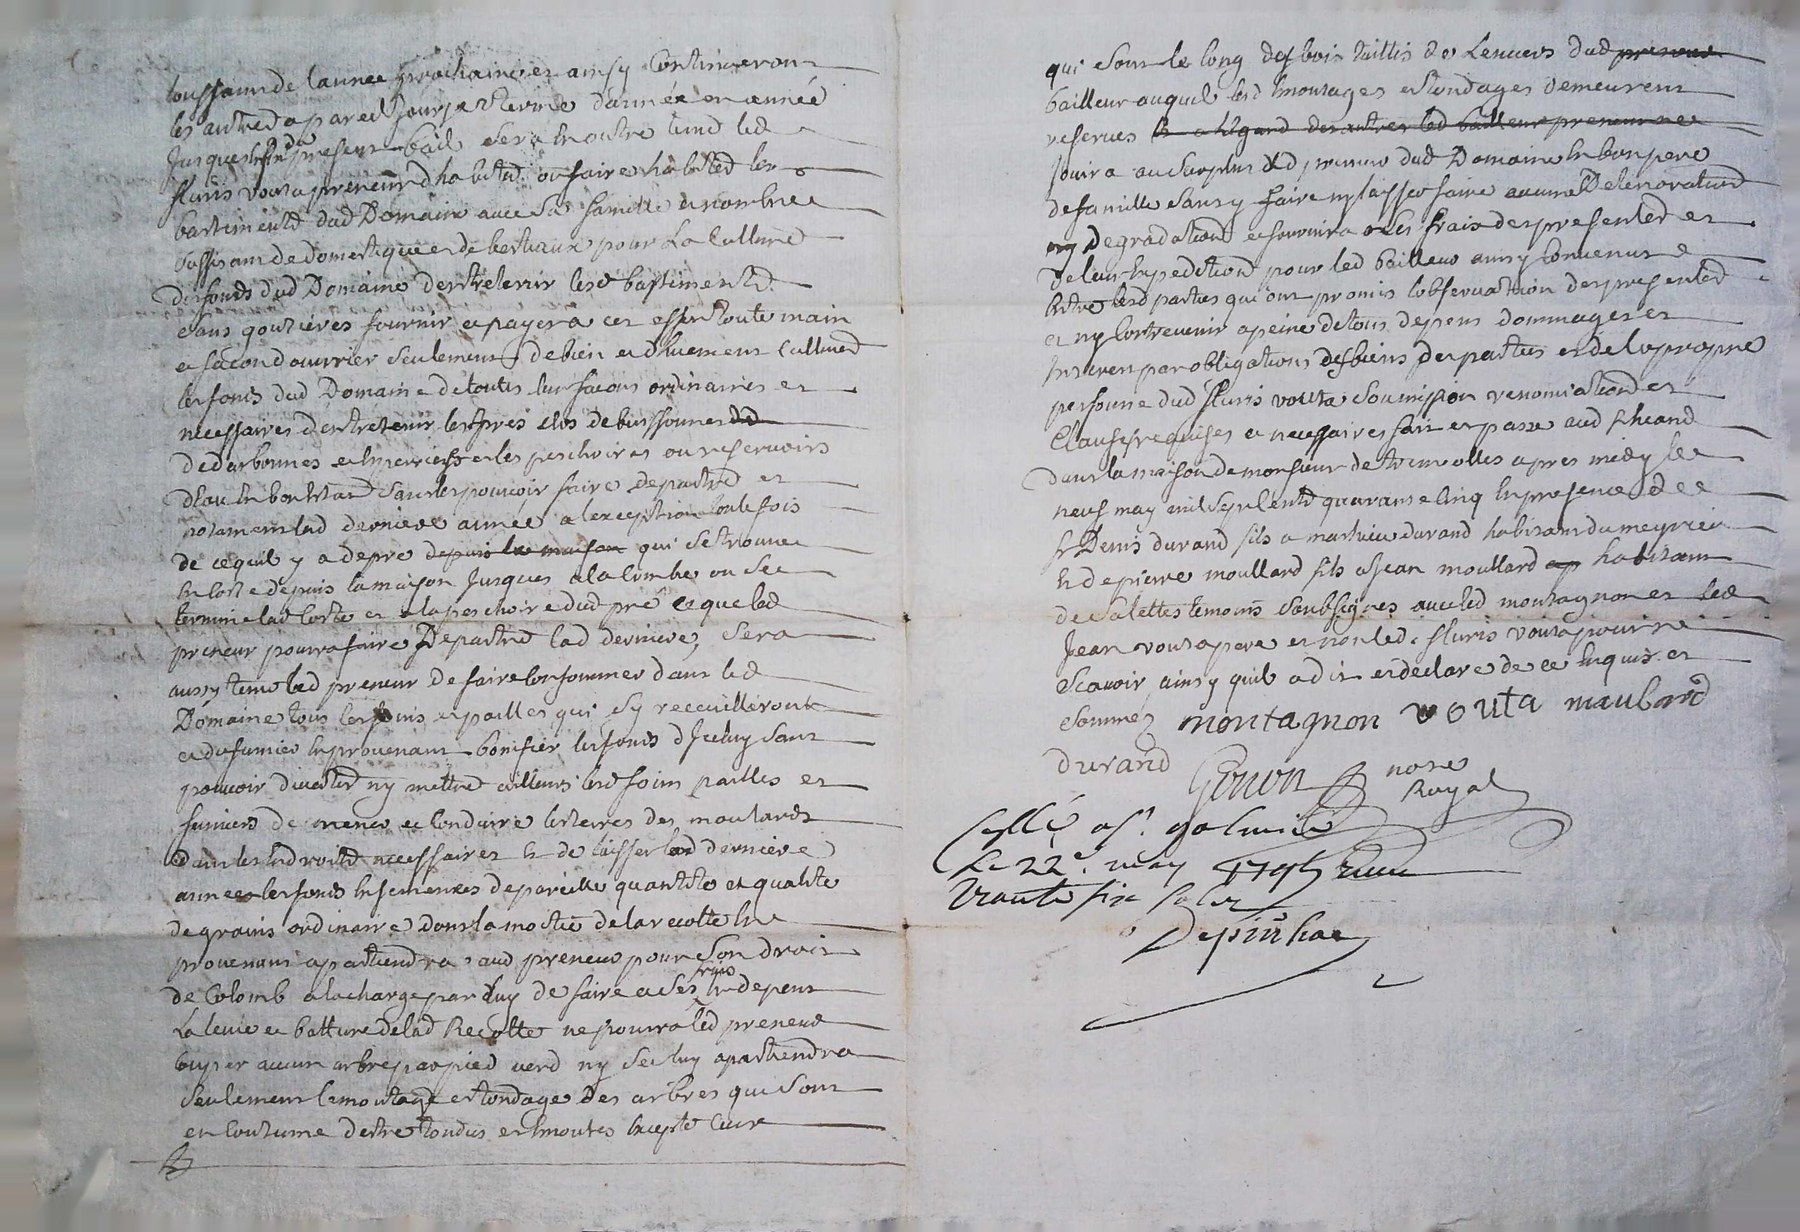 toussaint de lannee prochaine et ainsy Continueront
les autres a pareil Jour et terme dannée en année
Jusques fin du present bail sera en outre tenu led
fluris vouta preneur dhabiter ou faire habiter les
bastiments dud Domaine avec sa famille et nombre
suffisant de domestiques et de bestiaux pour La Culture
des fonds dud Domaine dentretenir lesd bastiments
sans goutieres fournir et payera cet effet toute main
et façon douvrier seulement de bien et duement cultiver
les fonds dud Domaine de toutes leur façons ordinaires et
necessaires dentretenir les prés clos de buissonnes
dedarbonnes et les peschoires ou reservoirs
deau en bon estat sans les pouvoir faire depaitre et
notament lad derniere année a lexception toutefois
de ce quil y a de pré depuis la maison qui se trouve
en Coste depuis la maison Jusques a la Combe ou se
termine lad Coste et a la peschoire dud pré et que led
preneur pourra faire Depaitre lad derniere, sera
aussy tenu led preneur de faire Consommer dans led
Domaine tous les foins et pailles qui sy recueilleront
et du fumier en provenant bonifier les fonds dIceluy sans
pouvoir divertir ny mettre ailleurs lesd foins pailles et
fumiers de mener et Conduire les terres des moulards
dans les endroits necessaires et de laisser lad derniere
année les fonds ensemencés de pareille quantité et qualité
de grains ordinaire dont la moitié de la recolte en
provenant apartiendra aud preneur pour son droit
de Colomb a la charge par luy de faire a ses frais et depens
La levée et batture de lad Recolte ne pourra led preneur
couper aucun arbre par pied verd ny sec luy apartiendra
seulement lemoutage et tondage des arbres qui sont
en Coutume destre tondus et emoutes excepté Ceux
qui sont le long des bois taillis de Lenvers dud preneur
bailleur auquel lesd emoutages et tondages demeurent
reservés et a legard des autres led bailleur preneur ne
Jouira au surplus led preneur dud Domaine en bon pere
de famille sans y faire ny laisser faire aucune Deterioration
ny Degradation et fournira Les frais des presentes et
de leur Expedition pour led bailleur ainsy Convenu
entre lesd parties qui ont promis lobservation des presentes
et ny Contrevenir a peine de tous depens dommages et
Interets par obligations des biens des parties et de la propre
personne dud fluris vouta soumission renonciation et
Clauses requises et necessaires fait et passé aud
dans la maison de monsieur de tremolles apres midy le
neuf may mil sept cents quarante cinq en presence de
sr Denis durand fils a mathieu durand habitant du meyrieu
et de pierre moullard fils a Jean moullard habitant
de Salettes temoins soubsignés avec led montagnon et led
Jean vouta pere et non led fluris vouta pour ne
scavoir ainsy quil a dit et declaré de ce enquis et
sommés montagnon vouta maulard
durand Genon notre
Royal
scellé a St galmier
Le 22e may 1745 reçu
trante six sols
Depinhac